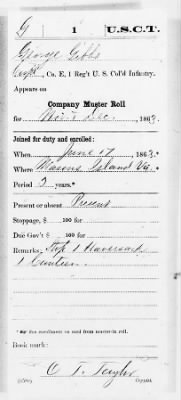 G | 1 | U.S.C.T.
George Gibbs
Corpl, Co. E, 1 Reg't U. S. Col'd Infantry.
Appears on
Company Muster Roll
for Nov & Dec, 1863.
Joined for duty and enrolled:
When June 17, 1863.*
Where Masons Island Va.
Period 3 years.*
Present or absent Present
Stoppage, $ 100 for
Due Gov't $ 100 for
Remarks: Stop 1 Haversack
1 Canteen
* See enrollment on card from muster-in roll.
Book mark:
Copyist.